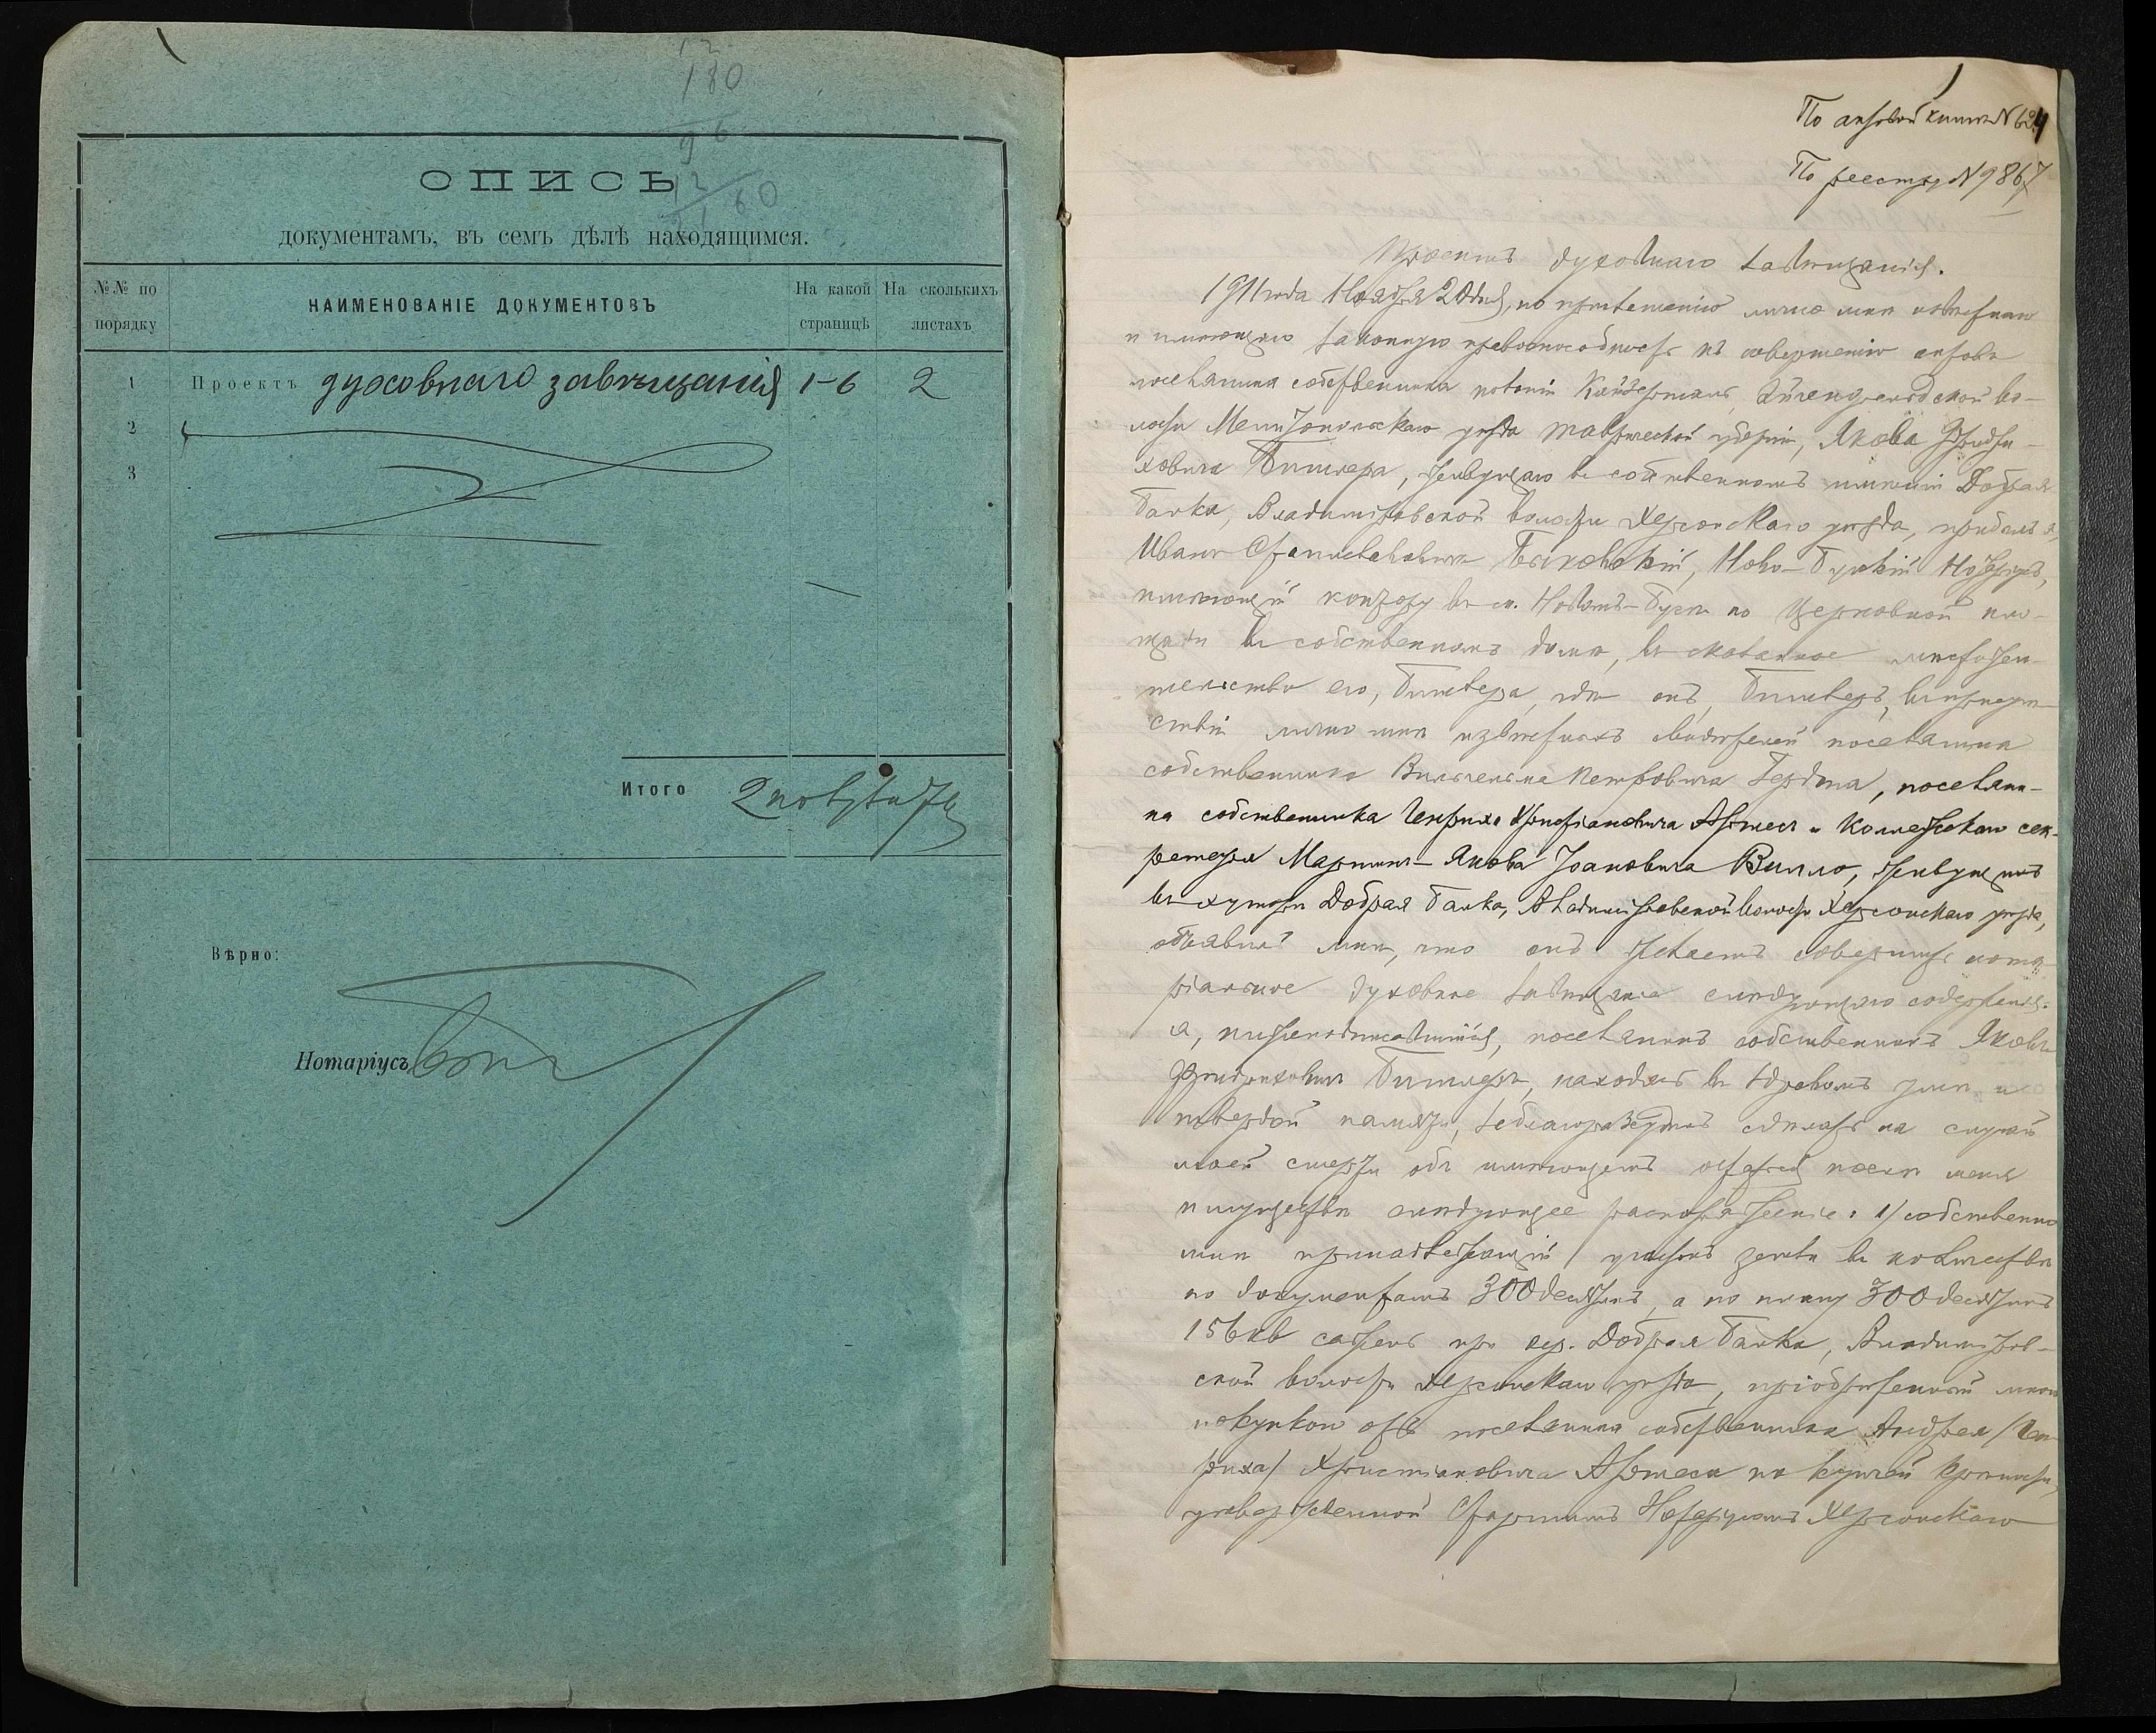 ОПИСЬ
документамъ, въ семъ дѣлѣ находящимся.
№№ по порядку
НАИМЕНОВАНІЕ ДОКУМЕНТОВЪ
На какой страницѣ
На сколькихъ листахъ
1 Проектъ духовнаго завѣщанія 1-6 2
2
3
Итого 2
Вѣрно:
Нотаріусъ
1
По актовой книгѣ №
По реестру № 9867
Проектъ духовнаго завѣщанія.
1911 года Ноября 20 дня, по приглашенію лично мнѣ извѣстнаго
и имѣющаго законную правоспособность къ совершенію актовъ
поселянина собственника колоніи Кайзерталь, Эйгенфельдской во-
лости Мелитопольскаго уѣзда Таврической губерніи, Якова Фридри-
ховича , живущаго въ собственномъ имѣніи Добрая
Балка, Владимировской волости Херсонскаго уѣзда, прибылъ я,
Иванъ Станиславовичъ , Ново-Бугскій Нотаріусъ,
имѣющій контору въ м. Новомъ-Бугѣ по Церковной пло-
щади въ собственномъ домѣ, въ сказанное мѣстожи-
тельство его, , гдѣ онъ, , въ присут-
ствіи лично мнѣ извѣстныхъ свидѣтелей поселянина
собственника Вильгельма Петровича , поселяни-
на собственника Генриха Христіановича и Коллежскаго сек-
ретаря Мартина-Якова Іоановича Вилло, живущихъ
въ хуторѣ Добрая Балка, Владимировской волости Херсонскаго уѣзда,
объявилъ мнѣ, что онъ желаетъ совершить нота-
ріальное духовное завѣщаніе слѣдующаго содержанія:
я, нижеподписавшійся, поселянинъ собственникъ Яковъ
Фридриховичъ , находясь въ здравомъ умѣ и
твердой памяти, заблагоразсудилъ сдѣлать на случай
моей смерти объ имѣющемъ остаться послѣ меня
имуществѣ слѣдующее распоряженіе: 1/ собственно
мнѣ принадлежащій участокъ земли въ количествѣ
по документамъ 300 десятинъ, а по плану 300 десятинъ
156 кв сажень при дер. Добрая Балка, Владимиров-
ской волости Херсонскаго уѣзда, пріобрѣтенный мною
покупкою отъ поселянина собственника Андрея /Ген-
риха/ Христіановича по купчей крѣпости,
утвержденной Старшимъ Нотаріусомъ Херсонскаго